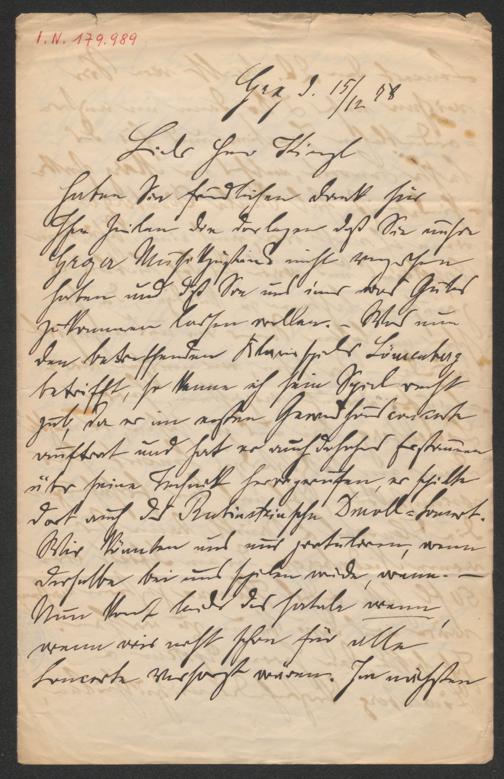 I.N. 179.989
Graz d. 15/12 88
Lieber Herr Kienzl
Haben Sie freundlichen Dank für
Ihre Zeilen die darlegen daß Sie unsre
Grazer Musikzustände nicht vergessen
haben und daß Sie uns immer was Gutes
zukommen lassen wollen. – Was nun
den betreffenden Klavierspieler Löwenberg
betrifft, so kenne ich sein Spiel recht
gut, da er im ersten Gewandhausconcerte
auftrat und hat er auch daselbst Erstaunen
über seine Technik hervorgerufen, er spielte
dort auch das Rubinsteinsche Dmoll-Concert.
Wir könnten uns nur gratuliren, wenn
derselbe bei uns spielen würde, wenn. —
Nun kommt leider das fatale wenn,
wenn wir nicht schon für alle
Concerte versorgt wären. Im nächsten